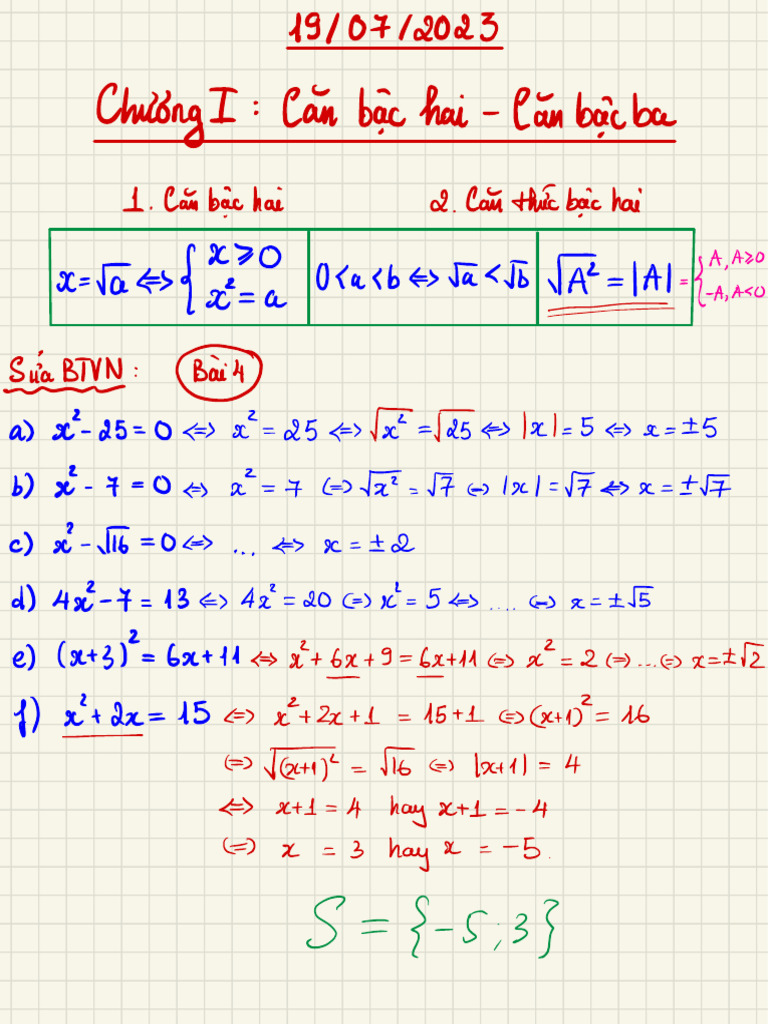 19/07/2023
Chương I : Căn bậc hai - Căn bậc ba
1. Căn bậc hai 2. Căn thức bậc hai
x = √a ⇔ { x ⩾ 0 x² = a 0 < a < b ⇔ √a < √b √A² = |A| = { A, A⩾0 -A, A<0
Sửa BTVN : Bài 4
a) x² - 25 = 0 ⇔ x² = 25 ⇔ √x² = √25 ⇔ |x| = 5 ⇔ x = ±5
b) x² - 7 = 0 ⇔ x² = 7 ⇔ √x² = √7 ⇔ |x| = √7 ⇔ x = ±√7
c) x² - √16 = 0 ⇔ ... ⇔ x = ±2
d) 4x² - 7 = 13 ⇔ 4x² = 20 ⇔ x² = 5 ⇔ .... ⇔ x = ±√5
e) (x+3)² = 6x+11 ⇔ x² + 6x + 9 = 6x + 11 ⇔ x² = 2 ⇔ ... ⇔ x = ±√2
f) x² + 2x = 15 ⇔ x² + 2x + 1 = 15 + 1 ⇔ (x+1)² = 16
⇔ √(x+1)² = √16 ⇔ |x+1| = 4
⇔ x+1 = 4 hay x+1 = -4
⇔ x = 3 hay x = -5.
S = {-5; 3}